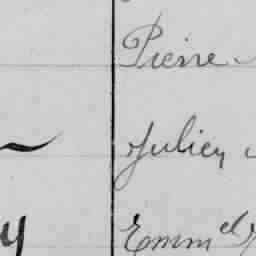 Pierre
Julien
y Emm^el